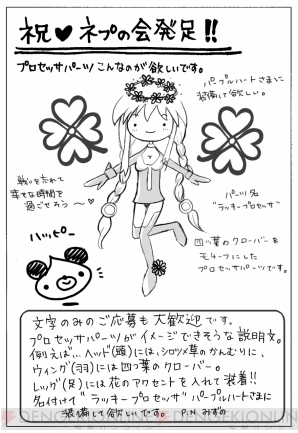 祝♥ネプの会発足!!
プロセッサパーツこんなのが欲しいです。
パープルハートさまに
装備して欲しい。
戦いを忘れて
幸せな時間を
過ごそう〜♡
パーツ名
"ラッキープロセッサ"
四ッ葉のクローバーを
モチーフにした
プロセッサパーツです。
ハッピー
文字のみのご応募も大歓迎です。
プロセッサパーツがイメージできそうな説明文。
例えば…ヘッド(頭)には、シロツメ草のかんむりに、
ウィング(羽)には四つ葉のクローバー。
レッグ(足)には花のアクセントを入れて装着!!
名付けて"ラッキープロセッサ"パープルハートさまに
装備して欲しいです。 P.N みずの
DENGEKIONLINE